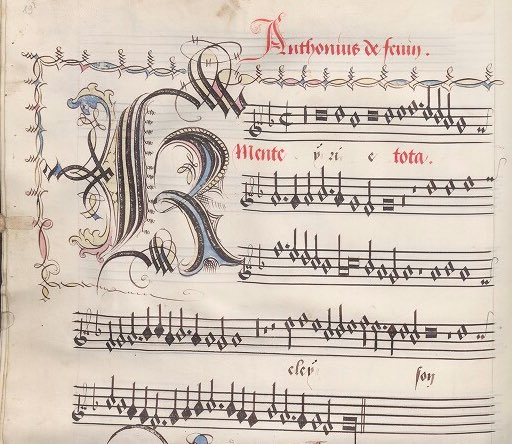 Anthonius de fevin.
K
Mente ÿri e tota.
eleÿ son